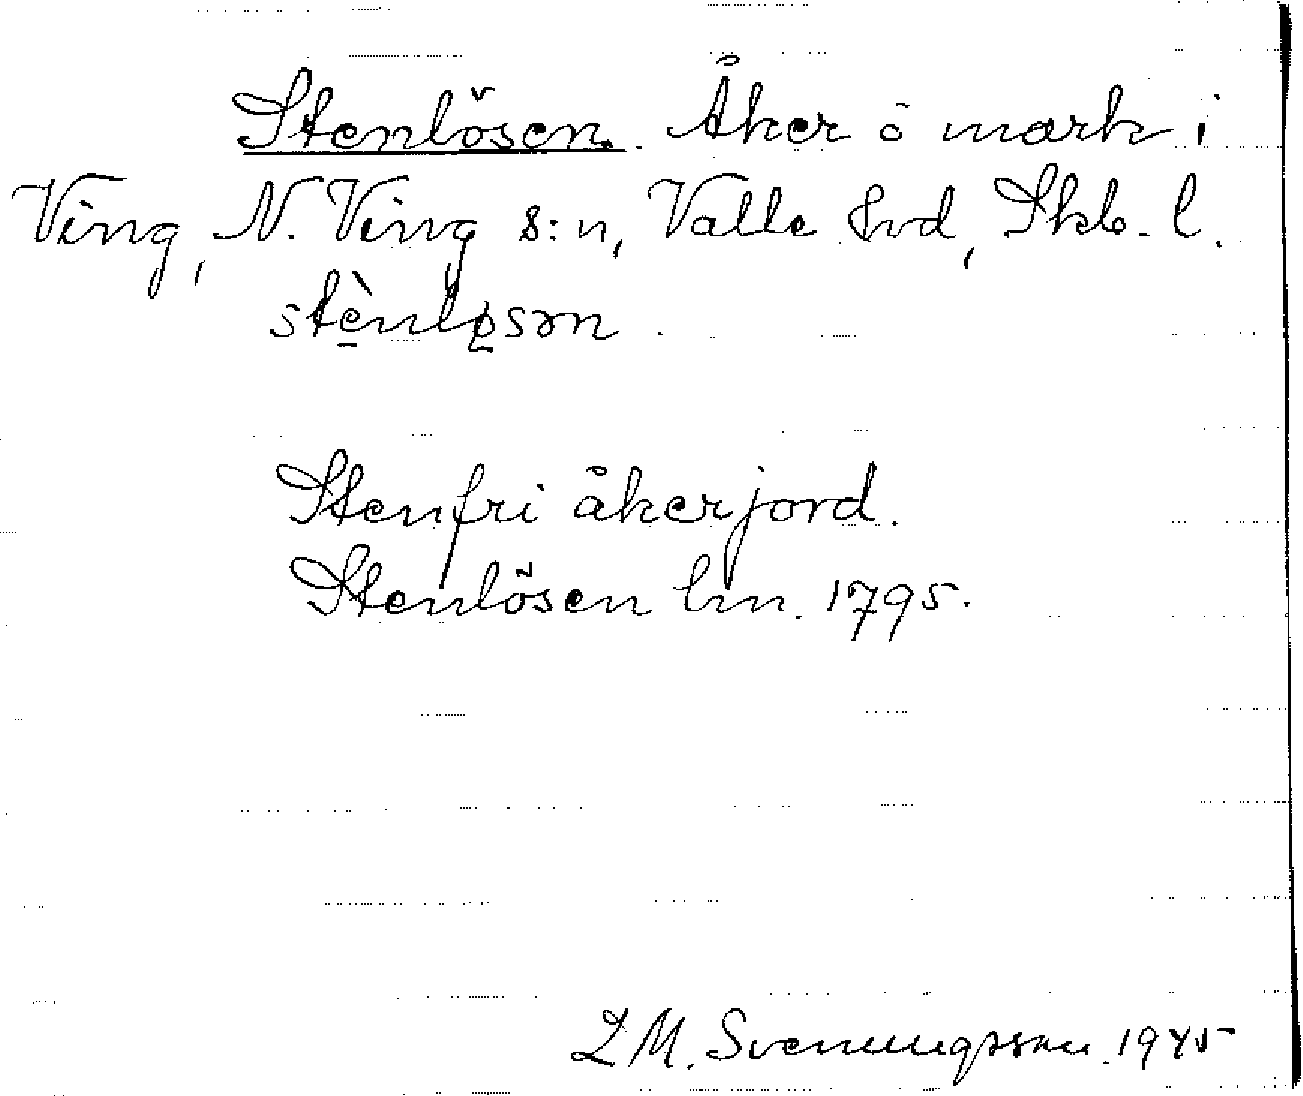 Stenlösen. Åker o mark i
Ving, N. Ving s:n, Valle hd, Skb. l.
stènløsən.
Stenfri åkerjord.
Stenlösen hm. 1795.
L M. Svenungsson. 1945